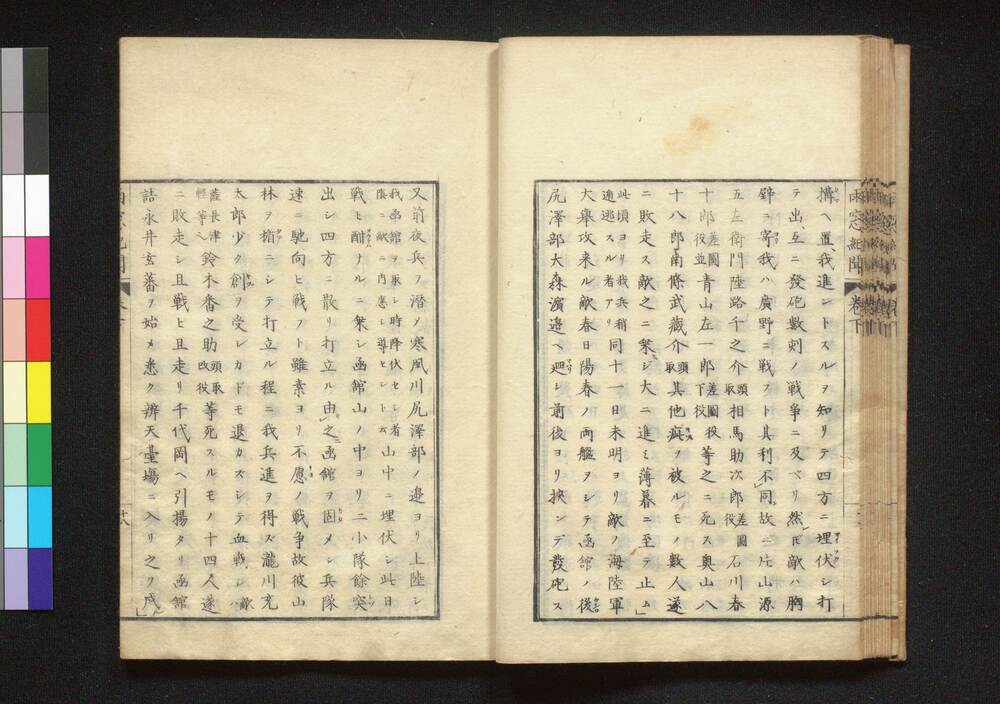 構ヘ置、我進ントスルヲ知リテ四方ニ埋伏シ打
テ出、互ニ發砲數刻ノ戦争ニ及ベリ然」𪜈敵ハ胸
壁ニ寄我ハ廣野ニ戦フト其利不同、故ニ片山源
五左衛門陸路千之介頭取相馬助次郎差圖役石川春
十郎差圖役並青山左一郎差圖役下役等之ニ死ス奥山八
十八郎南條武蔵介頭取其他疵ヲ被ルモノ數人遂
ニ敗走ス敵之ニ乗シ大ニ進ミ薄暮ニ至テ止ム」
此頃ヨリ我兵稍逋逃スル者アリ同十一日未明ヨリ敵ノ海陸軍
大擧攻来ル敵春日陽春ノ両艦ヲシテ函館ノ後
尻澤部大森濱邉ヘ廻シ前後ヨリ挾ンデ發砲ス
雨窓紀聞 巻下
又前夜兵ヲ潜メ寒風川尻澤部ノ邉ヨリ上陸シ
我函館ヲ取シ時降伏セシ者陰ニ敵ニ内應シ導セシト云山中ニ埋伏シ此日
戦ヒ酣ナルニ乗シ函館山ノ中ヨリ二小隊餘突
出シ四方ニ散リ打立ル由」之函館ヲ固メシ兵隊
速ニ馳向ヒ戦フト雖素ヨリ不慮ノ戦争故彼山
林ヲ楯ニシテ打立ル程ニ我兵進ヲ得ズ瀧川充
太郎少ク創ヲ受レカドモ退カズシテ血戦シ敵ハ
薩長津軽等ノ鈴木番之助頭取改役等死スルモノ十四人遂
ニ敗走シ且戦ヒ且走リ千代岡ヘ引揚タリ函館
詰永井玄蕃ヲ始メ悉ク辨天臺場ニ入リ之ヲ戍」